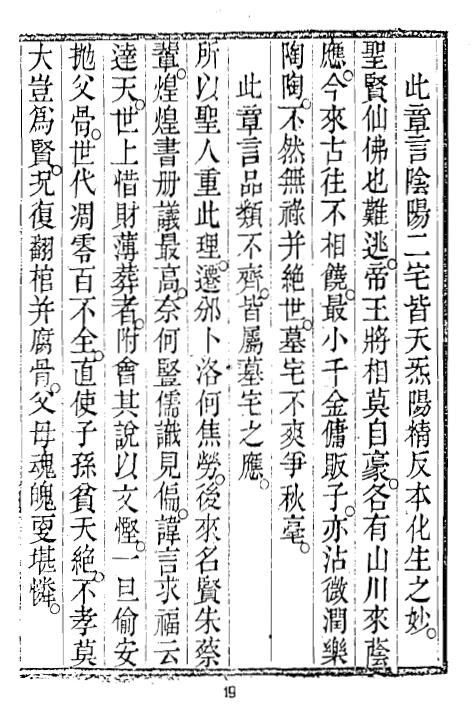 此章言陰陽二宅皆天炁陽精反本化生之妙。
聖賢仙佛也難逃。帝王將相莫自豪。各有山川來蔭
應。今來古往不相饒。最小千金傭販子。亦沾微潤樂
陶陶。不然無祿并絕世。墓宅不爽爭秋毫。
此章言品類不齊。皆屬墓宅之應。
所以聖人重此理。遷邠卜洛何焦勞。後來名賢朱蔡
輩。煌煌書册議最高。奈何豎儒識見偏。諱言求福云
達天。世上惜財薄葬者。附會其說以文慳。一旦偷安
拋父骨。世代凋零百不全。直使子孫貧夭絕。不孝莫
大豈爲賢。况復翻棺并腐骨。父母魂魄更堪憐。
19